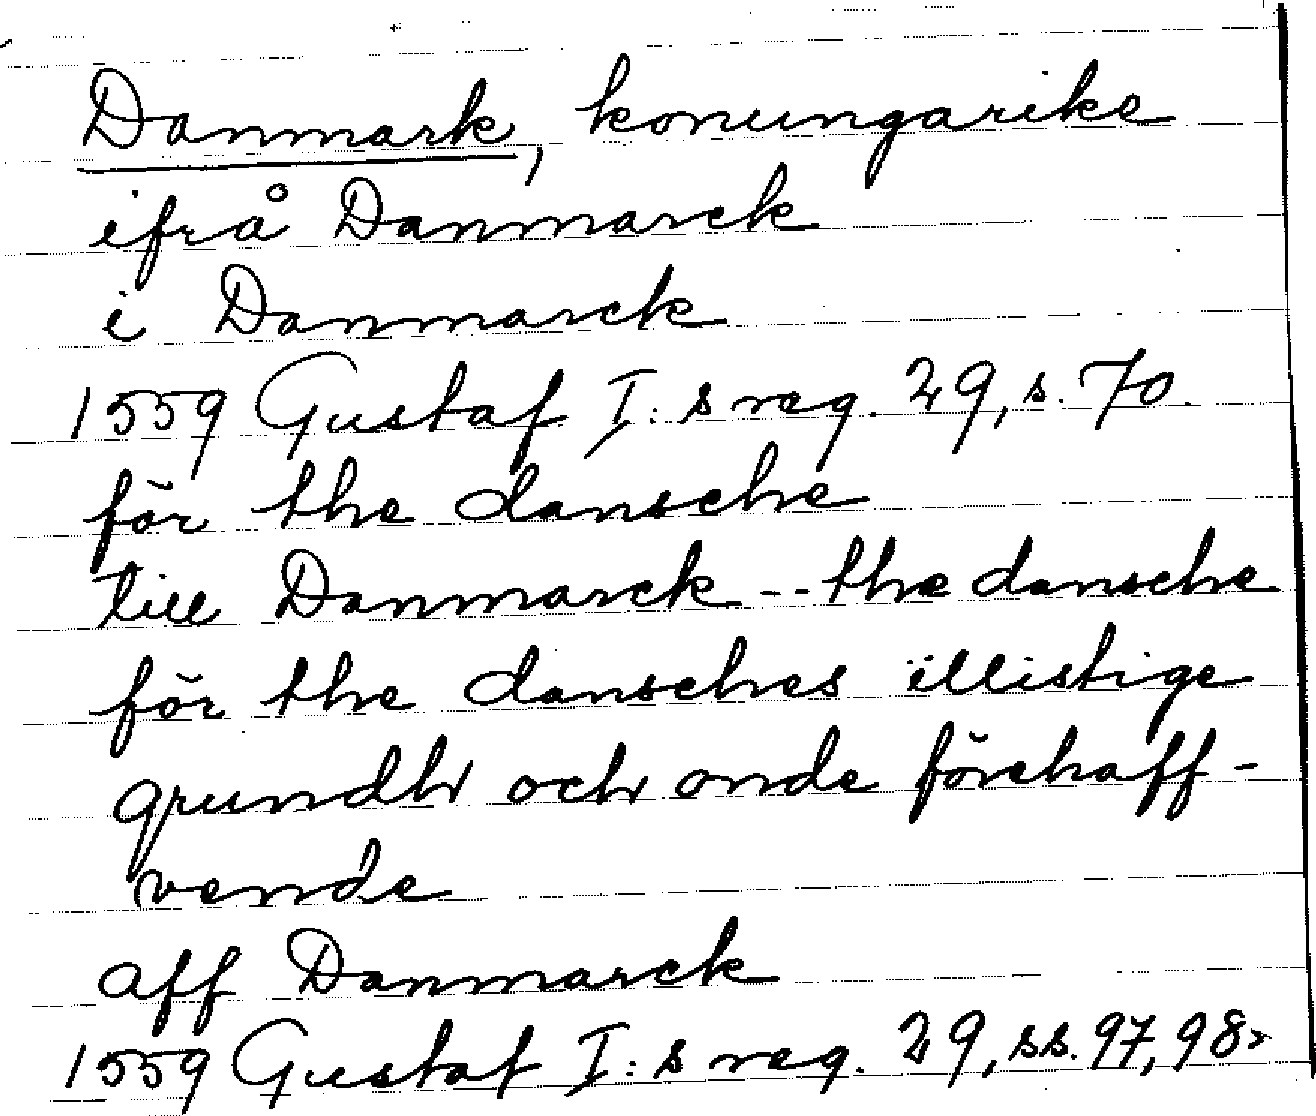 Danmark, konungarike
ifrå Danmarck
i Danmarck
1559 Gustaf I:s reg. 29, s. 70.
för the dansche
till Danmarck -- the dansche
för the dansches illistige
grundh och onde förehaff-
vende
aff Danmarck
1559 Gustaf I:s reg. 29, ss. 97, 98.